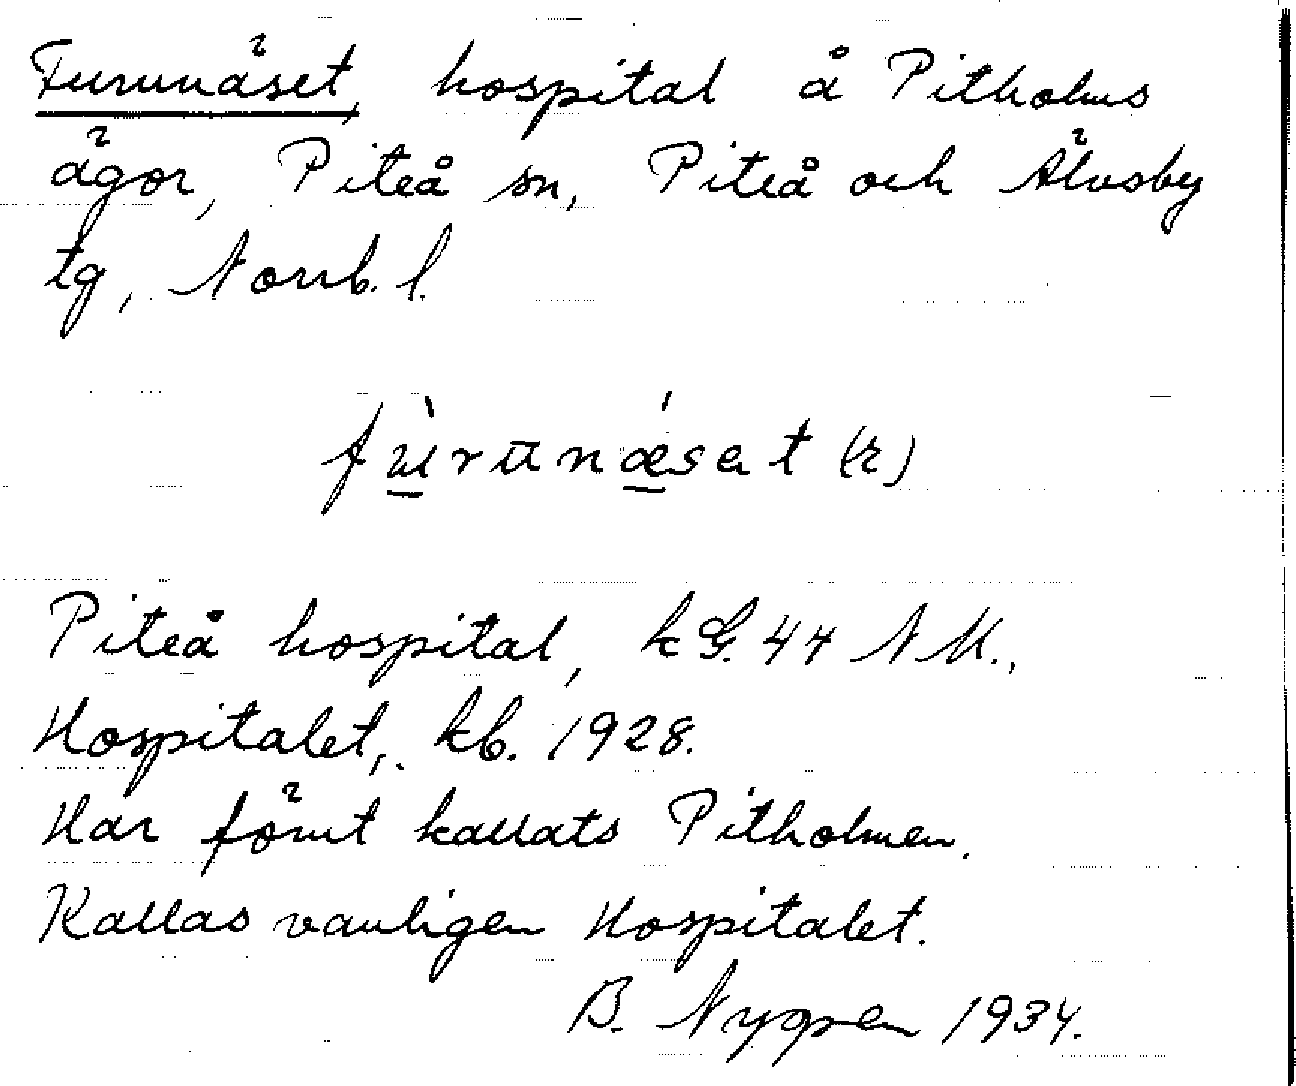 Furunäset, hospital å Pitholms
ägor, Piteå sn, Piteå och Älvsby
tg, Norrb. l.
fùrunǽsat (r)
Piteå hospital, kG. 44 NM.,
Hospitalet, kb. 1928.
Har förut kallats Pitholmen.
Kallas vanligen Hospitalet.
B. Nygren 1934.